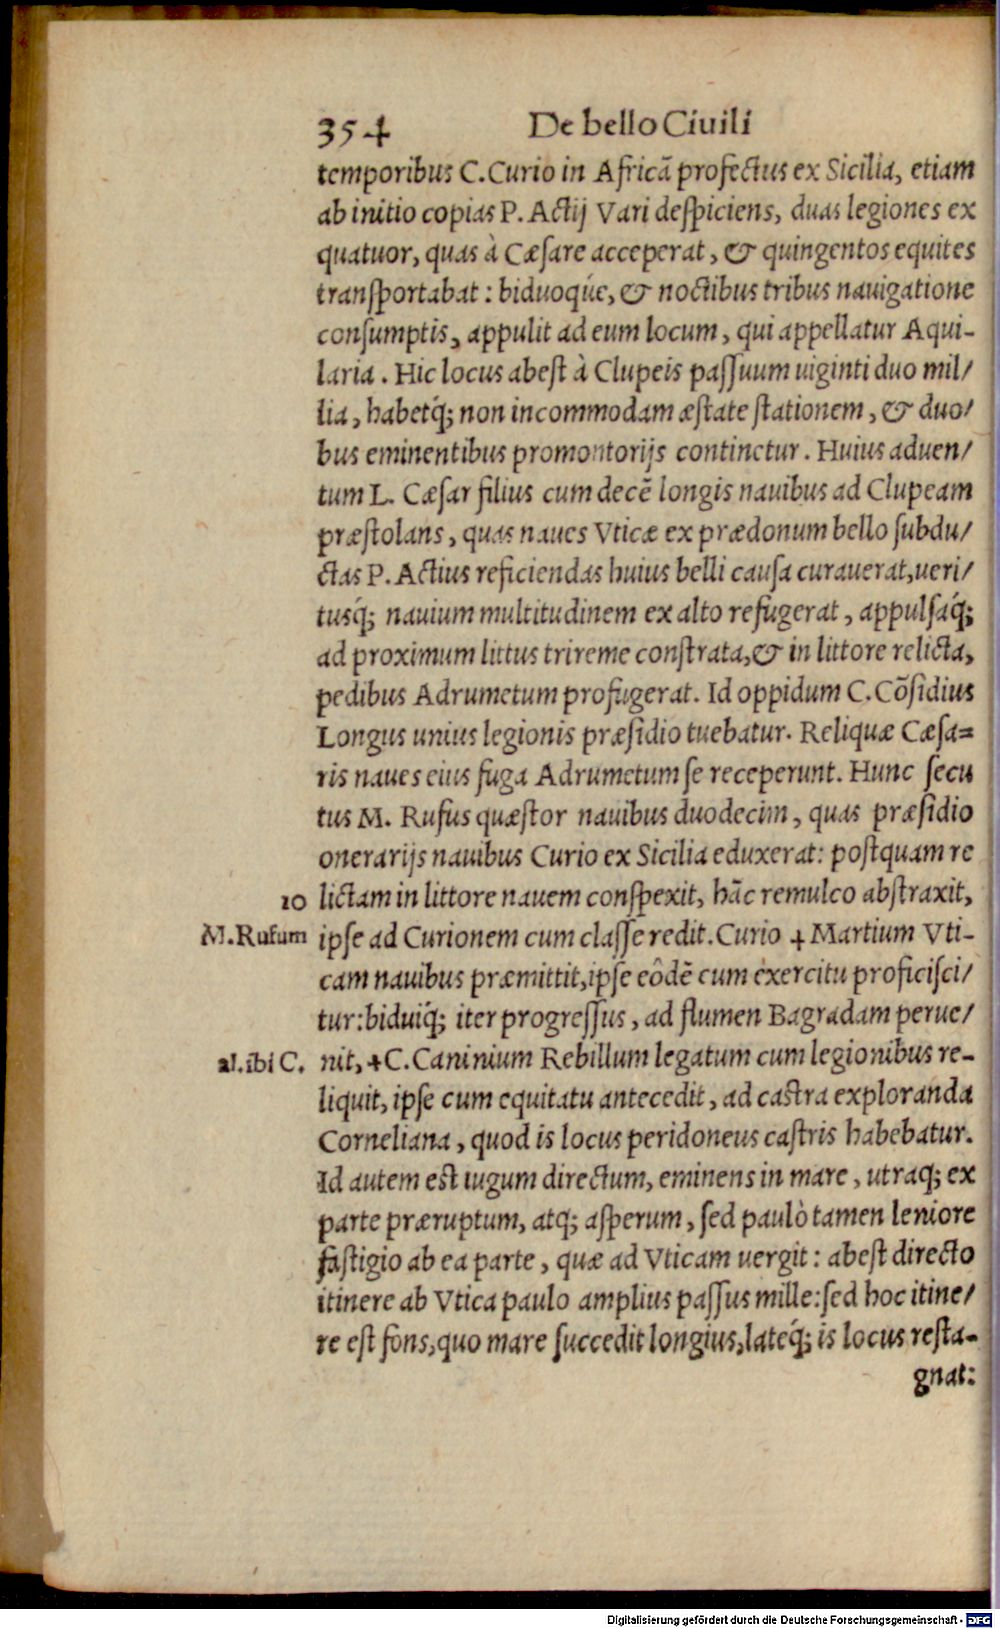 354 De bello Ciuili
temporibus C. Curio in Africã profectus ex Sicilia, etiam
ab initio copias P. Actij Vari despiciens, duas legiones ex
quatuor, quas à Cæsare acceperat, & quingentos equites
transportabat: biduoqúe, & noctibus tribus nauigatione
consumptis, appulit ad eum locum, qui appellatur Aqui-
laria. Hic locus abest à Clupeis passuum uiginti duo mil/
lia, habetq́; non incommodam æstate stationem, & duo/
bus eminentibus promontorijs continetur. Huius aduen/
tum L. Cæsar filius cum decẽ longis nauibus ad Clupeam
præstolans, quas naues Vticæ ex prædonum bello subdu/
ctas P. Actius reficiendas huius belli causa curauerat, ueri/
tusq́; nauium multitudinem ex alto refugerat, appulsaq́;
ad proximum littus trireme constrata, & in littore relicta,
pedibus Adrumetum profugerat. Id oppidum C. Cõsidius
Longus unius legionis præsidio tuebatur. Reliquæ Cæsa=
ris naues eius fuga Adrumetum se receperunt. Hunc secu
tus M. Rufus quæstor nauibus duodecim, quas præsidio
onerarijs nauibus Curio ex Sicilia eduxerat: postquam re
10 lictam in littore nauem conspexit, hãc remulco abstraxit,
M. Rufum ipse ad Curionem cum classe redit. Curio + Martium Vti-
cam nauibus præmittit, ipse eõdẽ cum exercitu proficisci/
tur: biduiq́; iter progressus, ad flumen Bagradam perue/
al. ibi C. nit, + C. Caninium Rebillum legatum cum legionibus re-
liquit, ipse cum equitatu antecedit, ad castra exploranda
Corneliana, quod is locus peridoneus castris habebatur.
Id autem est iugum directum, eminens in mare, utraq; ex
parte præruptum, atq; asperum, sed paulò tamen leniore
fastigio ab ea parte, quæ ad Vticam uergit: abest directo
itinere ab Vtica paulo amplius passus mille: sed hoc itine/
re est fons, quo mare succedit longius, lateq́; is locus resta-
gnat:
Digitalisierung gefördert durch die Deutsche Forschungsgemeinschaft - DFG